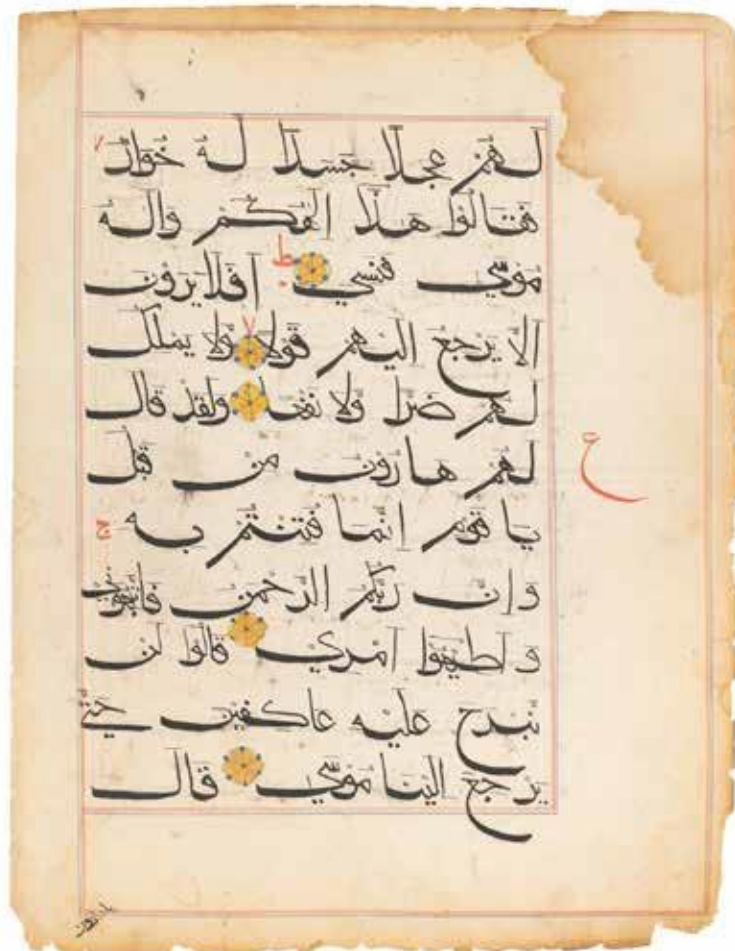 لَهُمْ عِجْلًا جَسَدًا لَهُ خُوَارٌ
فَقَالُوا هٰذَا اِلٰهُكُمْ وَاِلٰهُ
مُوْسٰى فَنَسِيَ ط اَفَلَا يَرَوْنَ
اَلَّا يَرْجِعُ اِلَيْهِمْ قَوْلًا وَّلَا يَمْلِكُ
لَهُمْ ضَرًّا وَّلَا نَفْعًا وَلَقَدْ قَالَ
لَهُمْ هَارُوْنُ مِنْ قَبْلُ
يَا قَوْمِ اِنَّمَا فُتِنْتُمْ بِهٖ ج
وَاِنَّ رَبَّكُمُ الرَّحْمٰنُ فَاتَّبِعُوْنِيْ
وَاَطِيْعُوْا اَمْرِيْ قَالُوْا لَنْ
نَّبْرَحَ عَلَيْهِ عَاكِفِيْنَ حَتّٰى
يَرْجِعَ اِلَيْنَا مُوْسٰى قَالَ
ع
يا هرون